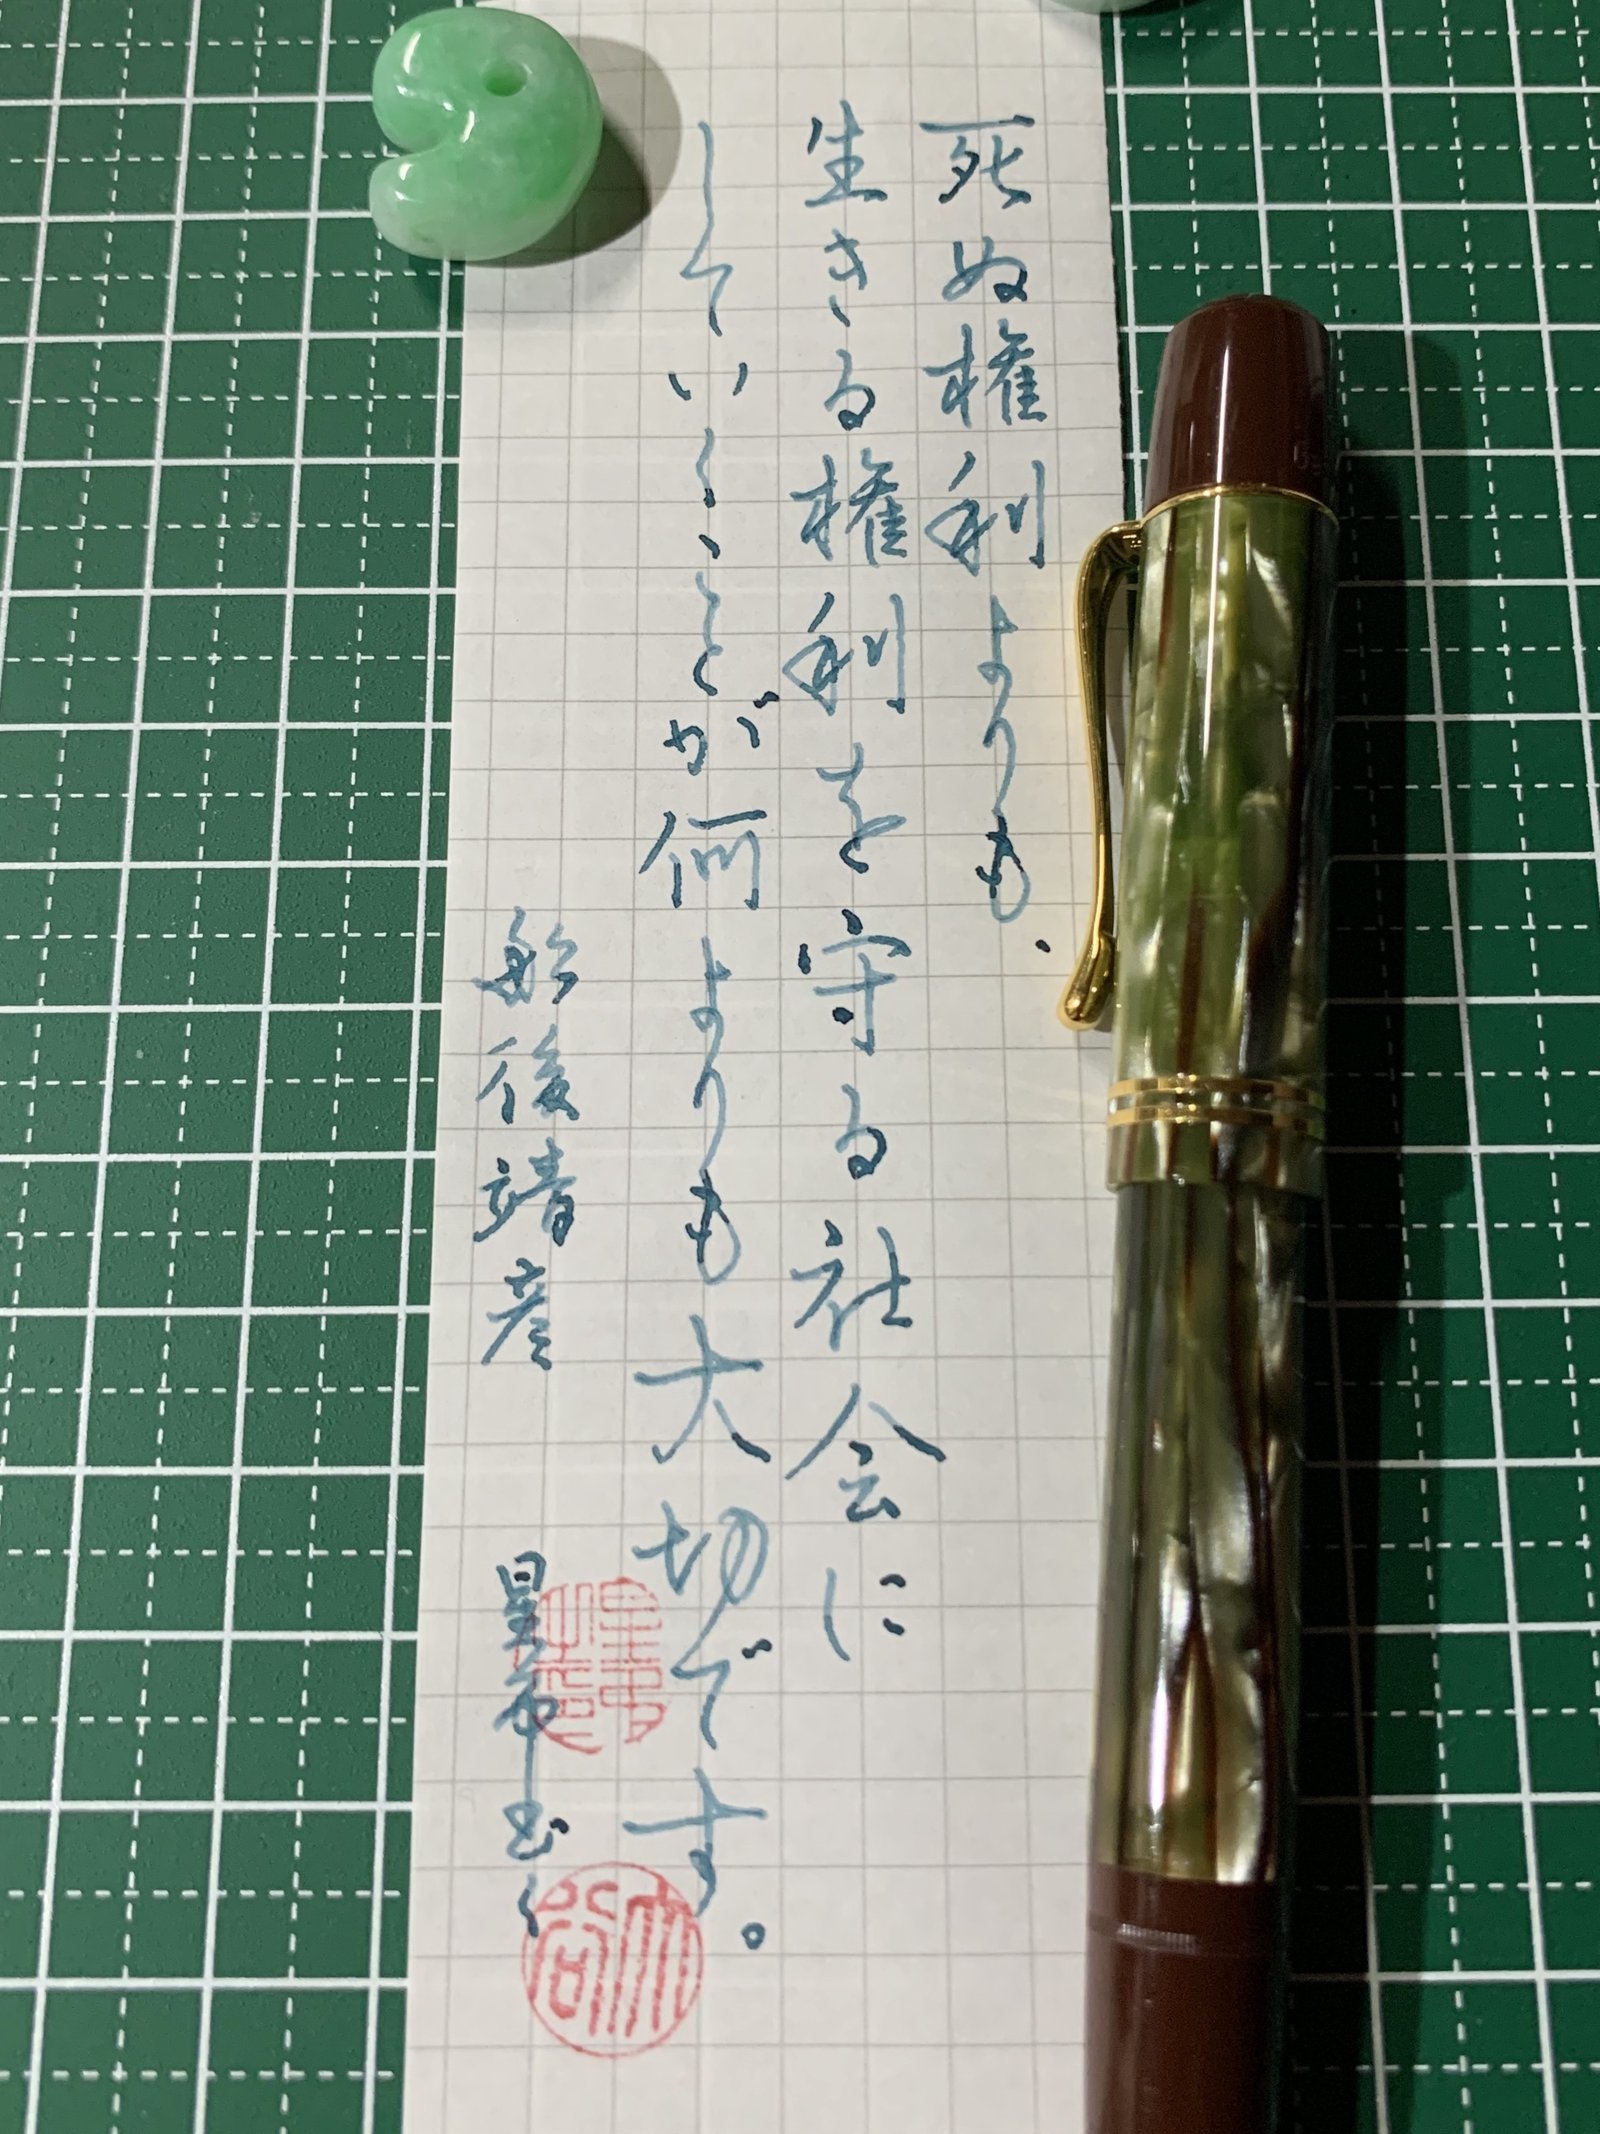 死ぬ権利よりも、
生きる権利を守る社会に
していくことが何よりも大切です。
舩後靖彦